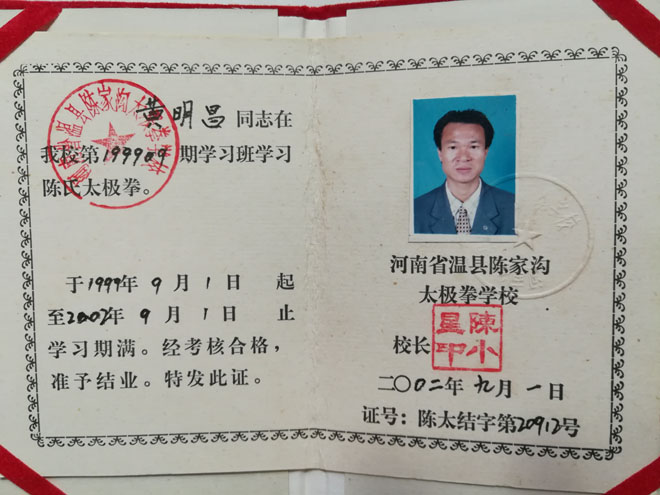 黄明昌 同志在
我校第199909期学习班学习
陈氏太极拳。
于1999年9月1日 起
至2002年9月1日 止
学习期满。经考核合格，
准予结业。特发此证。
河南省温县陈家沟太极拳学校
河南省温县陈家沟
太极拳学校
校长
陳小星印
二〇〇二年九月一日
证号：陈太结字第20912号